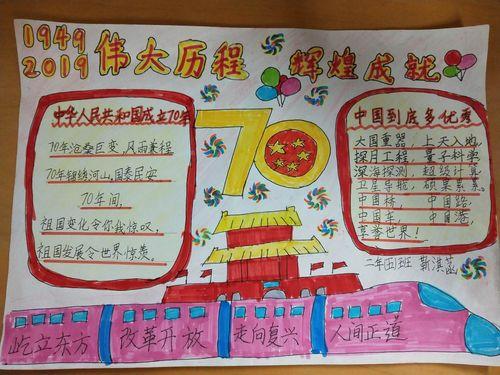 1949
2019
伟大历程 辉煌成就
中华人民共和国成立70年
70年沧桑巨变,风雨兼程
70年锦绣河山,国泰民安
70年间,
祖国变化令你我惊叹,
祖国发展令世界惊羡。
70
中国到底多优秀
大国重器, 上天入地,
探月工程, 量子科学,
深海探测, 超级计算,
卫星导航, 硕果累累。
中国桥, 中国路,
中国车, 中国港,
享誉世界!
二年(五)班 靳淇菡
屹立东方 改革开放 走向复兴 人间正道